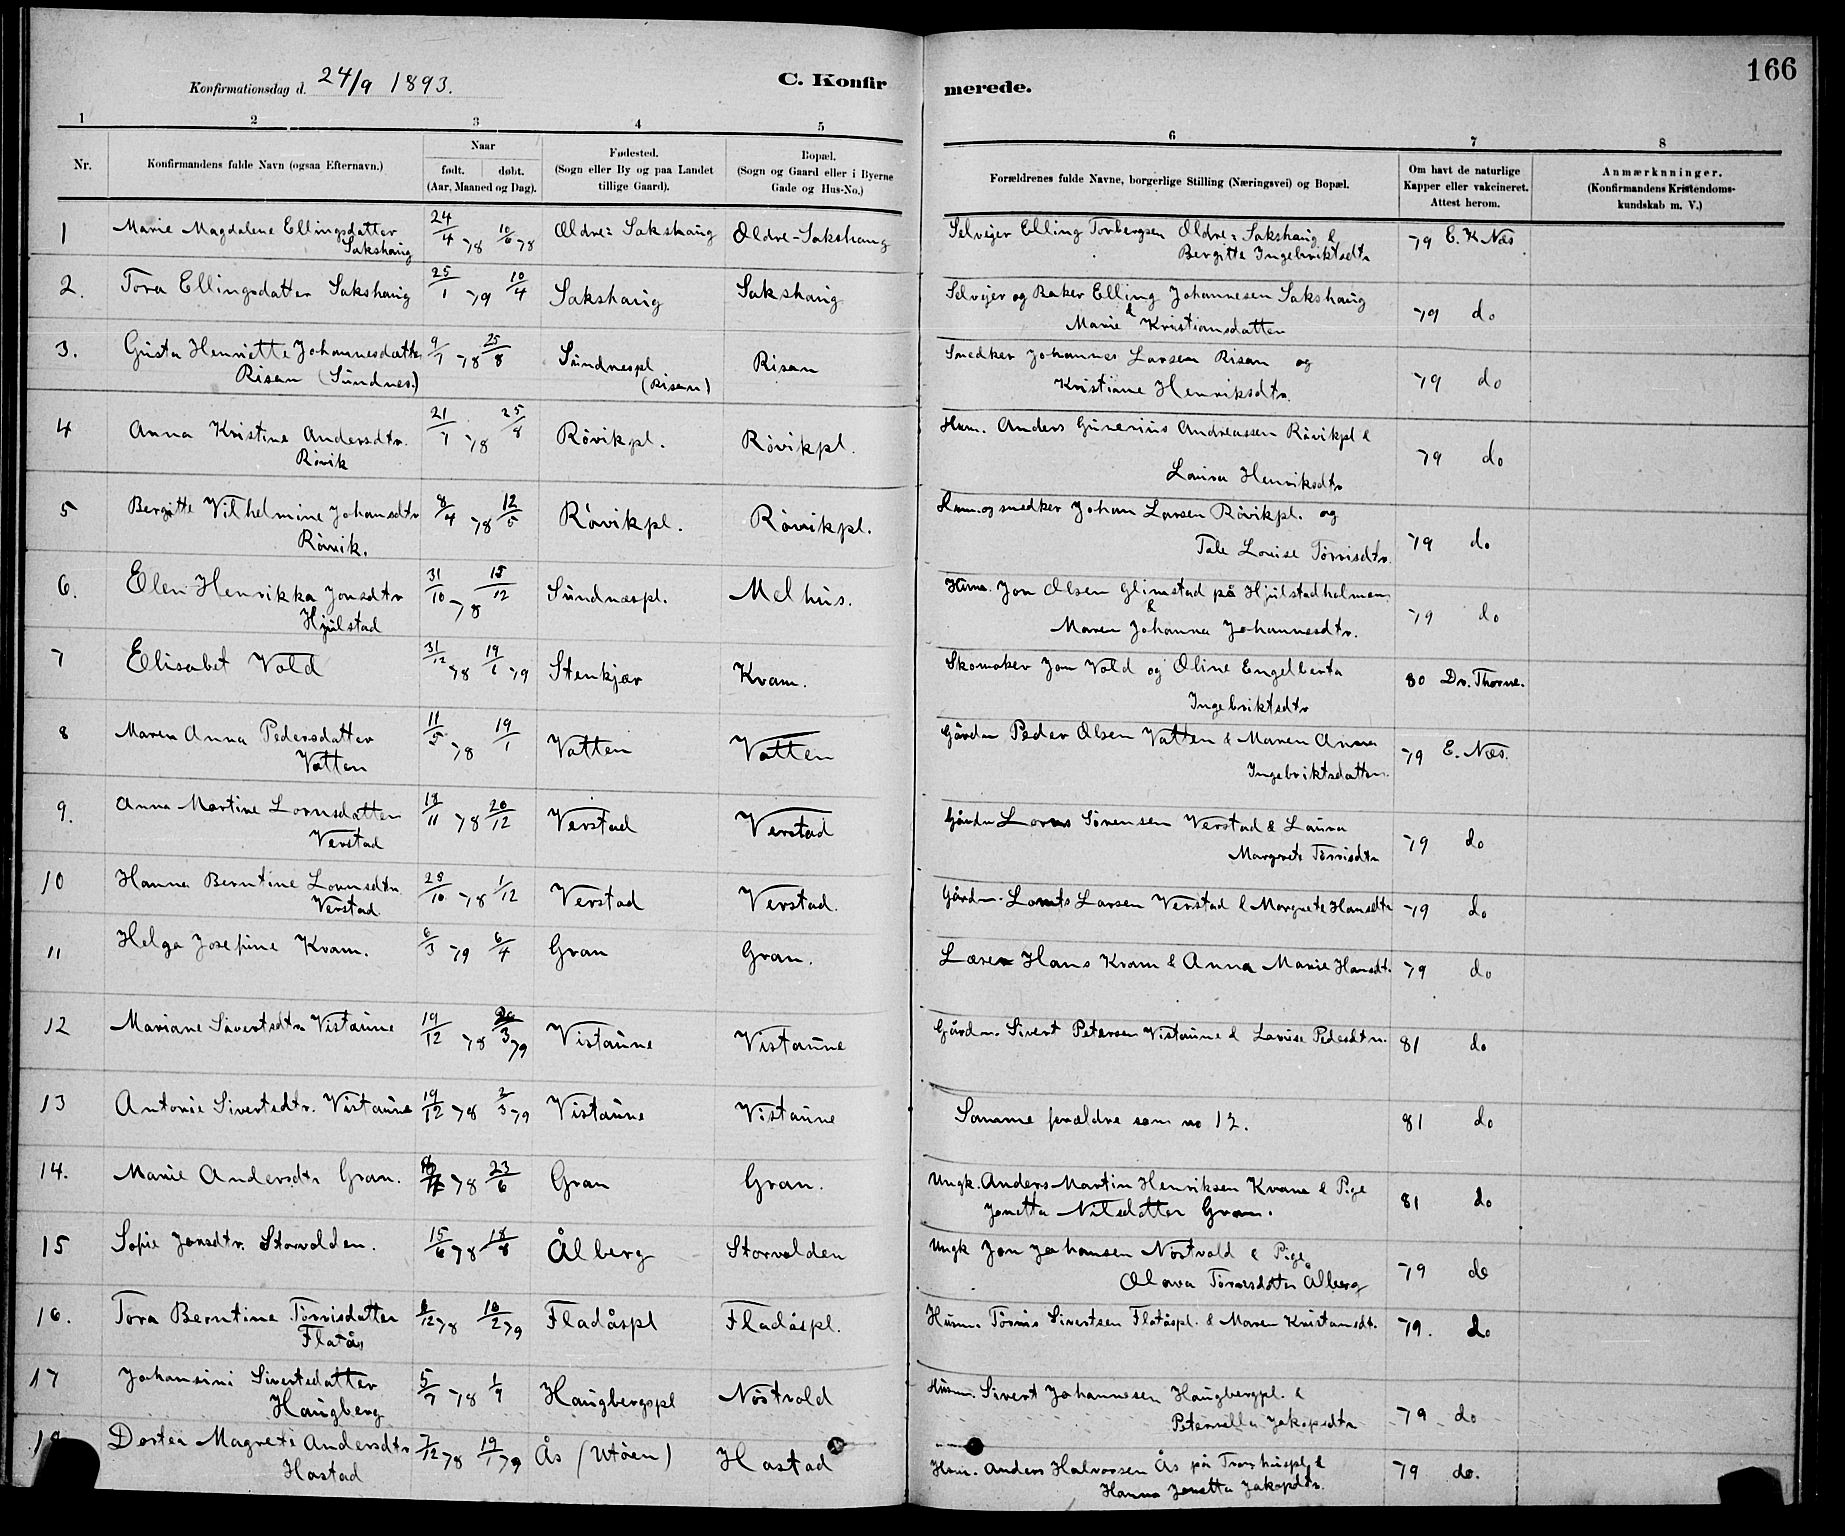 166
Konfirmationsdag d. 24/9 1893.
C. Konfirmerede.
1 2 3 4 5 6 7 8
Nr.
Konfirmandens fulde Navn (ogsaa Efternavn.)
Naar
født. døbt.
(Aar, Maaned og Dag).
Fødested.
(Sogn eller By og paa Landet
tillige Gaard).
Bopæl.
(Sogn og Gaard eller i Byerne
Gade og Hus-No.)
Forældrenes fulde Navne, borgerlige Stilling (Næringsvei) og Bopæl.
Om havt de naturlige
Kapper eller vakcineret.
Attest herom.
Anmærknninger.
(Konfirmandens Kristendoms-
kundskab m. V.)
1 Marie Magdalene Ellingsdatter 24/4 78 10/6 78 Oldre= Sakshaug Oldre-Sakshaug Selveier Elling Torbergsen Oldre= Sakshaug & 79 E. K Næs
Sakshaug Bergitte Ingebriktsdtr
2. Tora Ellingsdatter Sakshaug 25/1 79 10/4 Sakshaug Sakshaug Selveier og Baker Elling Johannesen Sakshaug 79 do
& Marie Kristiansdatter
3. Gusta Henriette Johannesdatter 9/7 78 25/8 Sundnespl Risan Snedker Johannes Larsen Risan og 79 do
Risan (Sundnes.) (Risan) Kristiane Henriksdtr.
4 Anna Kristine Andersdtr. 21/7 78 25/8 Røvikpl. Røvikpl. Husm. Anders Gunerius Andreassen Røvikpl & 79 do
Røvik Laura Henriksdtr
5 Bergitte Vilhelmine Johansdtr 8/4 78 12/5 Røvikpl. Røvikpl. Husm. og snedker Johan Larsen Røvikpl. og 79 do
Røvik. Tale Louise Tørrisdtr.
6. Elen Henrikka Jonsdtr 31/10 78 15/12 Sundnæspl. Melhus. Husm. Jon Olsen Glimstad på Hjulstadholmen 79 do
Hjulstad & Maren Johanna Johannesdtr.
7 Elisabet Vold 31/12 78 19/1 79 Stenkjær Kvam. Skomaker Jon Vold og Oline Engelberta 80 Dr. Thorne.
Ingebriktsdtr
8 Maren Anna Pedersdatter 11/5 78 19/1 Vatten Vatten Gårdm Peder Olsen Vatten & Maren Anna 79 E. Næs.
Vatten Ingebriktsdatter.
9. Anna Martine Lornsdatter 18/11 78 20/12 Verstad Verstad Gårdm Lorns Sørensen Verstad & Laura 79 do
Verstad Margrete Tørrisdtr
10 Hanna Berntine Lornsdtr. 28/10 78 1/12 Verstad Verstad. Gårdm. Lornts Larsen Verstad & Margrete Hansdtr 79 do
Verstad
11 Helga Josefine Kvam. 6/3 79 6/4 Gran Gran. Lærer Hans Kvam & Anna Marie Hansdt. 79 do
12 Mariane Sivertsdtr Vistaune 19/12 78 3 79 Vistaune Vistaune Gårdm. Sivert Petersen Vistaune & Lovise Pedesdtr. 81 do
13 Antonie Sivertsdtr. Vistaune 19/12 78 2/3 79 Vistaune Vistaune Samme forældre som no 12. 81 do
14. Marie Andersdtr Gran. 78 23/6 Gran Gran. Ungk. Anders Martin Henriksen Kvam & Pige 81 do
Jonetta Nilsdatter Gran.
15 Sofie Jonsdtr. Storvolden. 15/6 78 18/8 Ålberg Storvolden Ungk Jon Johansen Nøstvold & Pige 79 do
Olava Tørrisdatter Ålberg
16. Tora Berntine Tørrisdatter 8/12 78 10/2 79 Fladåspl Fladåspl. Husm. Tørris Sivertsen Flatåspl. & Maren Kristansdt. 79. do
Flatås
17 Johansini Sivertsdatter 5/7 78 1/9 Haugbergspl Nøstvold Husm. Sivert Johannesen Haugbergpl. & 79 do
Haugberg Peternella Jakopsdtr
Dortea Magrete Andersdtr 7/12 78 19/1 79 Ås (Utøen) Hastad Husm. Anders Halvorsen Ås på & 79 do.
Hastad Hanna Jonetta Jakopsdtr.